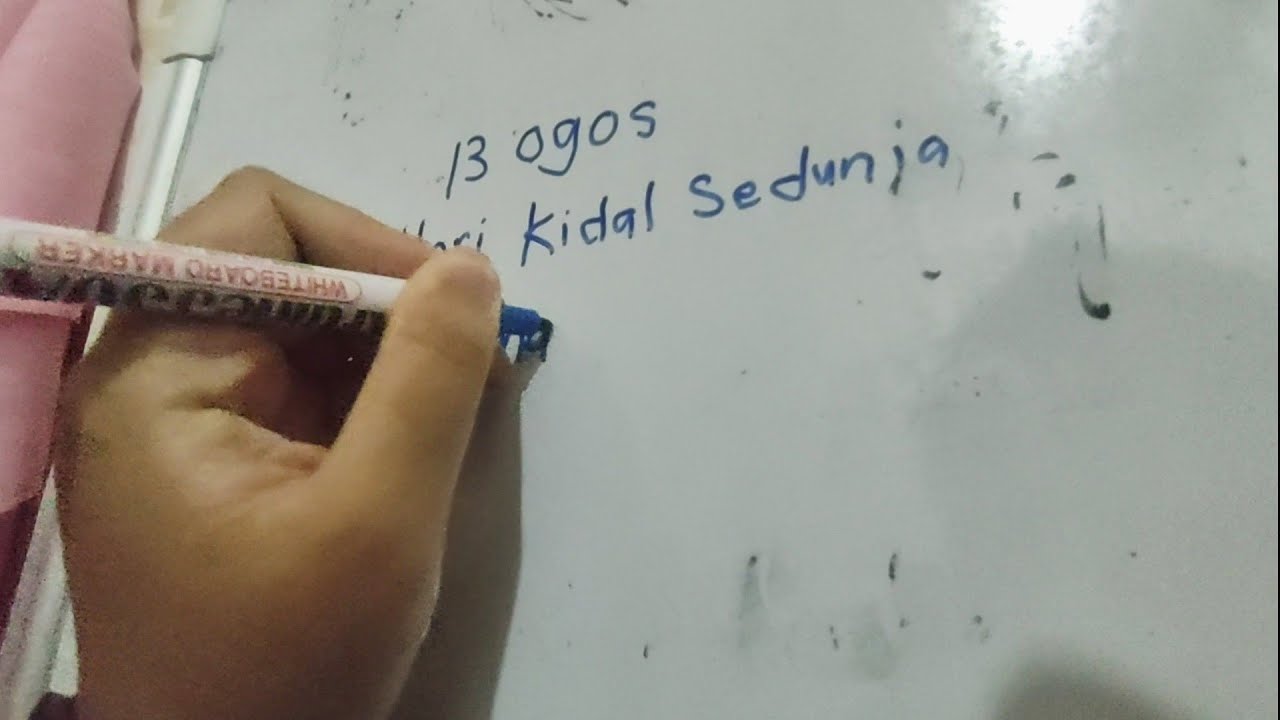 13 Ogos
Hari Kidal Sedunia
WHITEBOARD MARKER